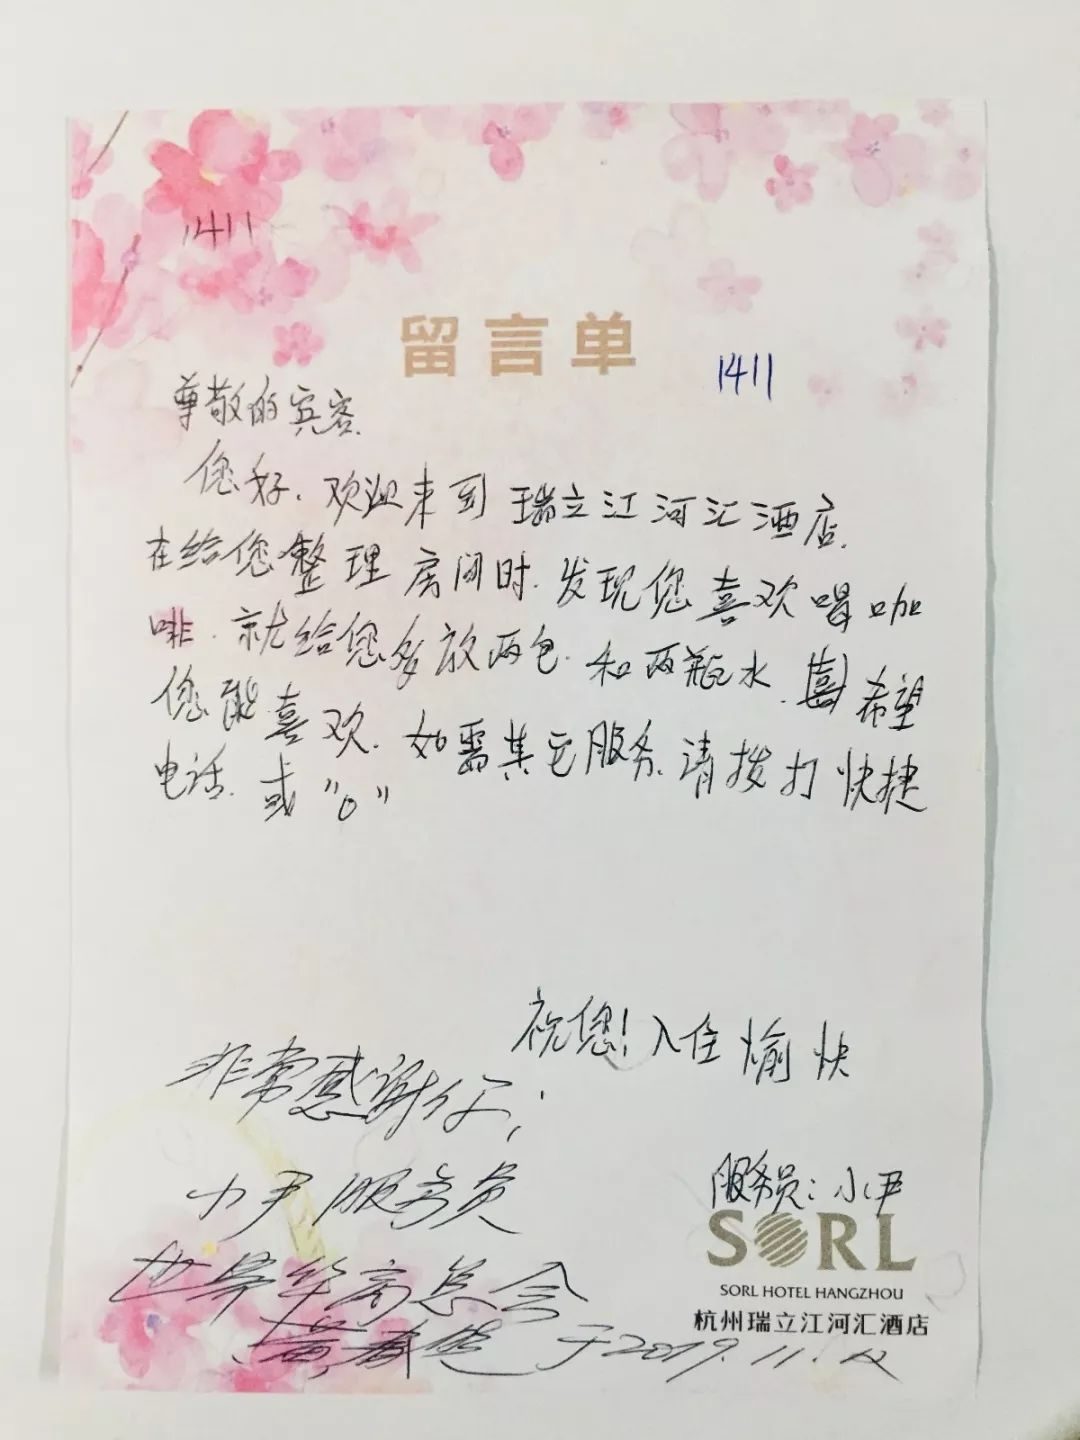 1411
留言单
1411
尊敬的宾客.
您好.欢迎来到瑞立江河汇酒店.
在给您整理房间时.发现您喜欢喝咖
啡.就给您多放两包.和两瓶水.希望
您能喜欢.如需其它服务.请拨打快捷
电话.或"0"
祝您!入住愉快
非常感谢你;
服务员:小尹
小尹服务员
SORL
SORL HOTEL HANGZHOU
杭州瑞立江河汇酒店
世界华商总会
黄 于2019.11.12